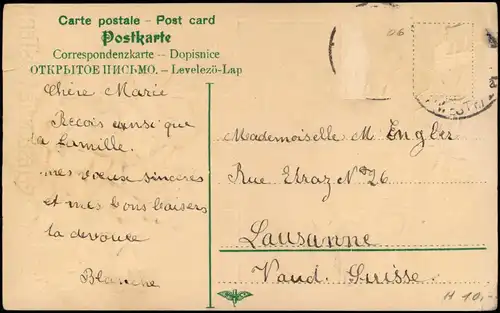 Carte postale – Post card
Postkarte
Correspondenzkarte – Dopisnice
ОТКРЫТОЕ ПИСЬМО. – Levelezö-Lap
06
Chère Marie
Reçois ainsi que
ta famille.
mes voeux sincères
et mes bons baisers
ta dévouée
Blanche
Mademoiselle M. Engler
Rue Etraz No 26
Lausanne
Vaud. Suisse.
H 10,-